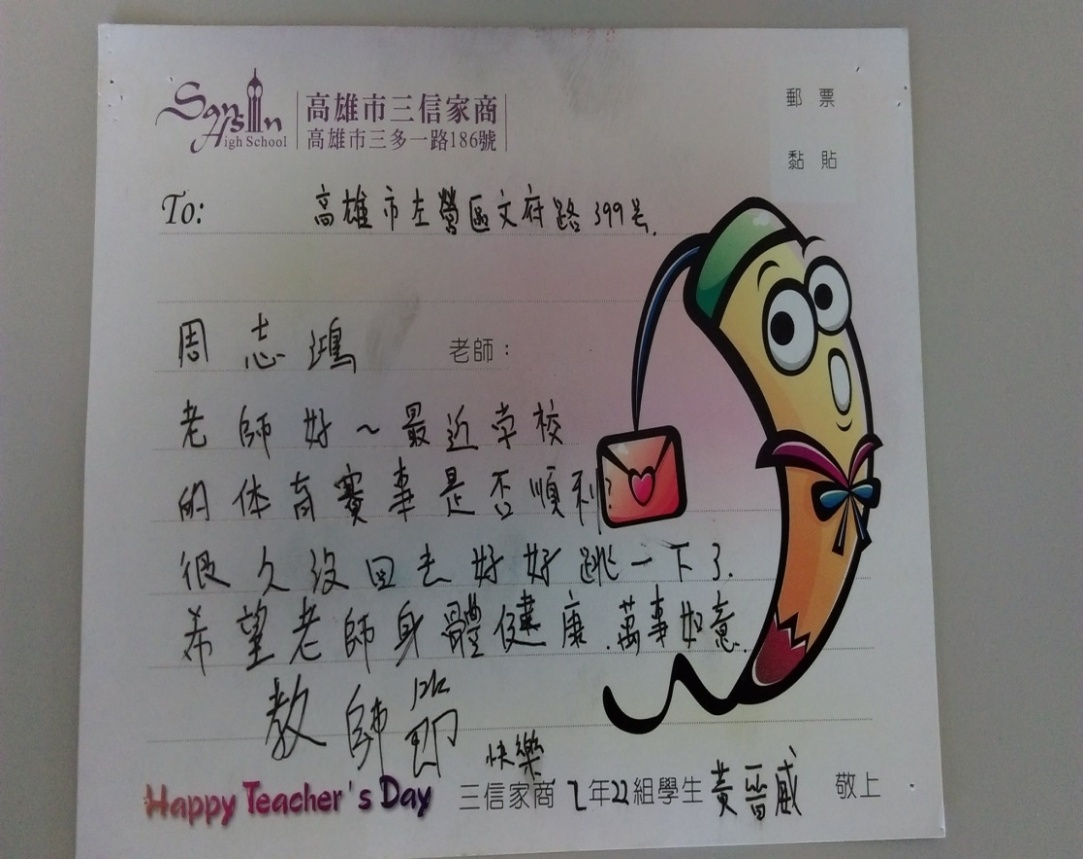 San Sin High School
高雄市三信家商
高雄市三多一路186號
郵票
黏貼
To: 高雄市左營區文府路399号.
周志鴻 老師：
老師好～最近学校
的体育賽事是否順利?
很久沒回去好好跳一下了.
希望老師身體健康.萬事如意.
教師節
快樂
Happy Teacher's Day 三信家商 2年22組學生 黃晉威 敬上